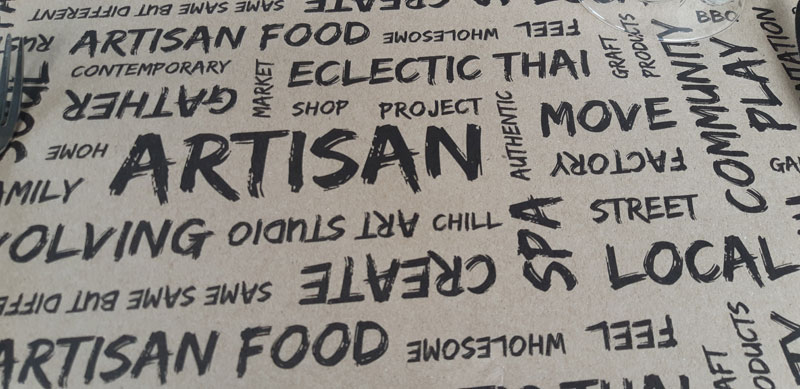 SAME SAME BUT DIFFERENT
CREATE
BBQ
ARTISAN FOOD
WHOLESOME
FEEL
CONTEMPORARY
MARKET
ECLECTIC THAI
PRODUCTS
COMMUNITY
PLAY
GATHER
SHOP
PROJECT
AUTHENTIC
MOVE
HOME
ARTISAN
FACTORY
AMILY
OLVING
ART STUDIO
CHILL
SPA
STREET
LOCAL
SAME SAME BUT DIFFE
CREATE
ARTISAN FOOD
WHOLESOME
FEEL